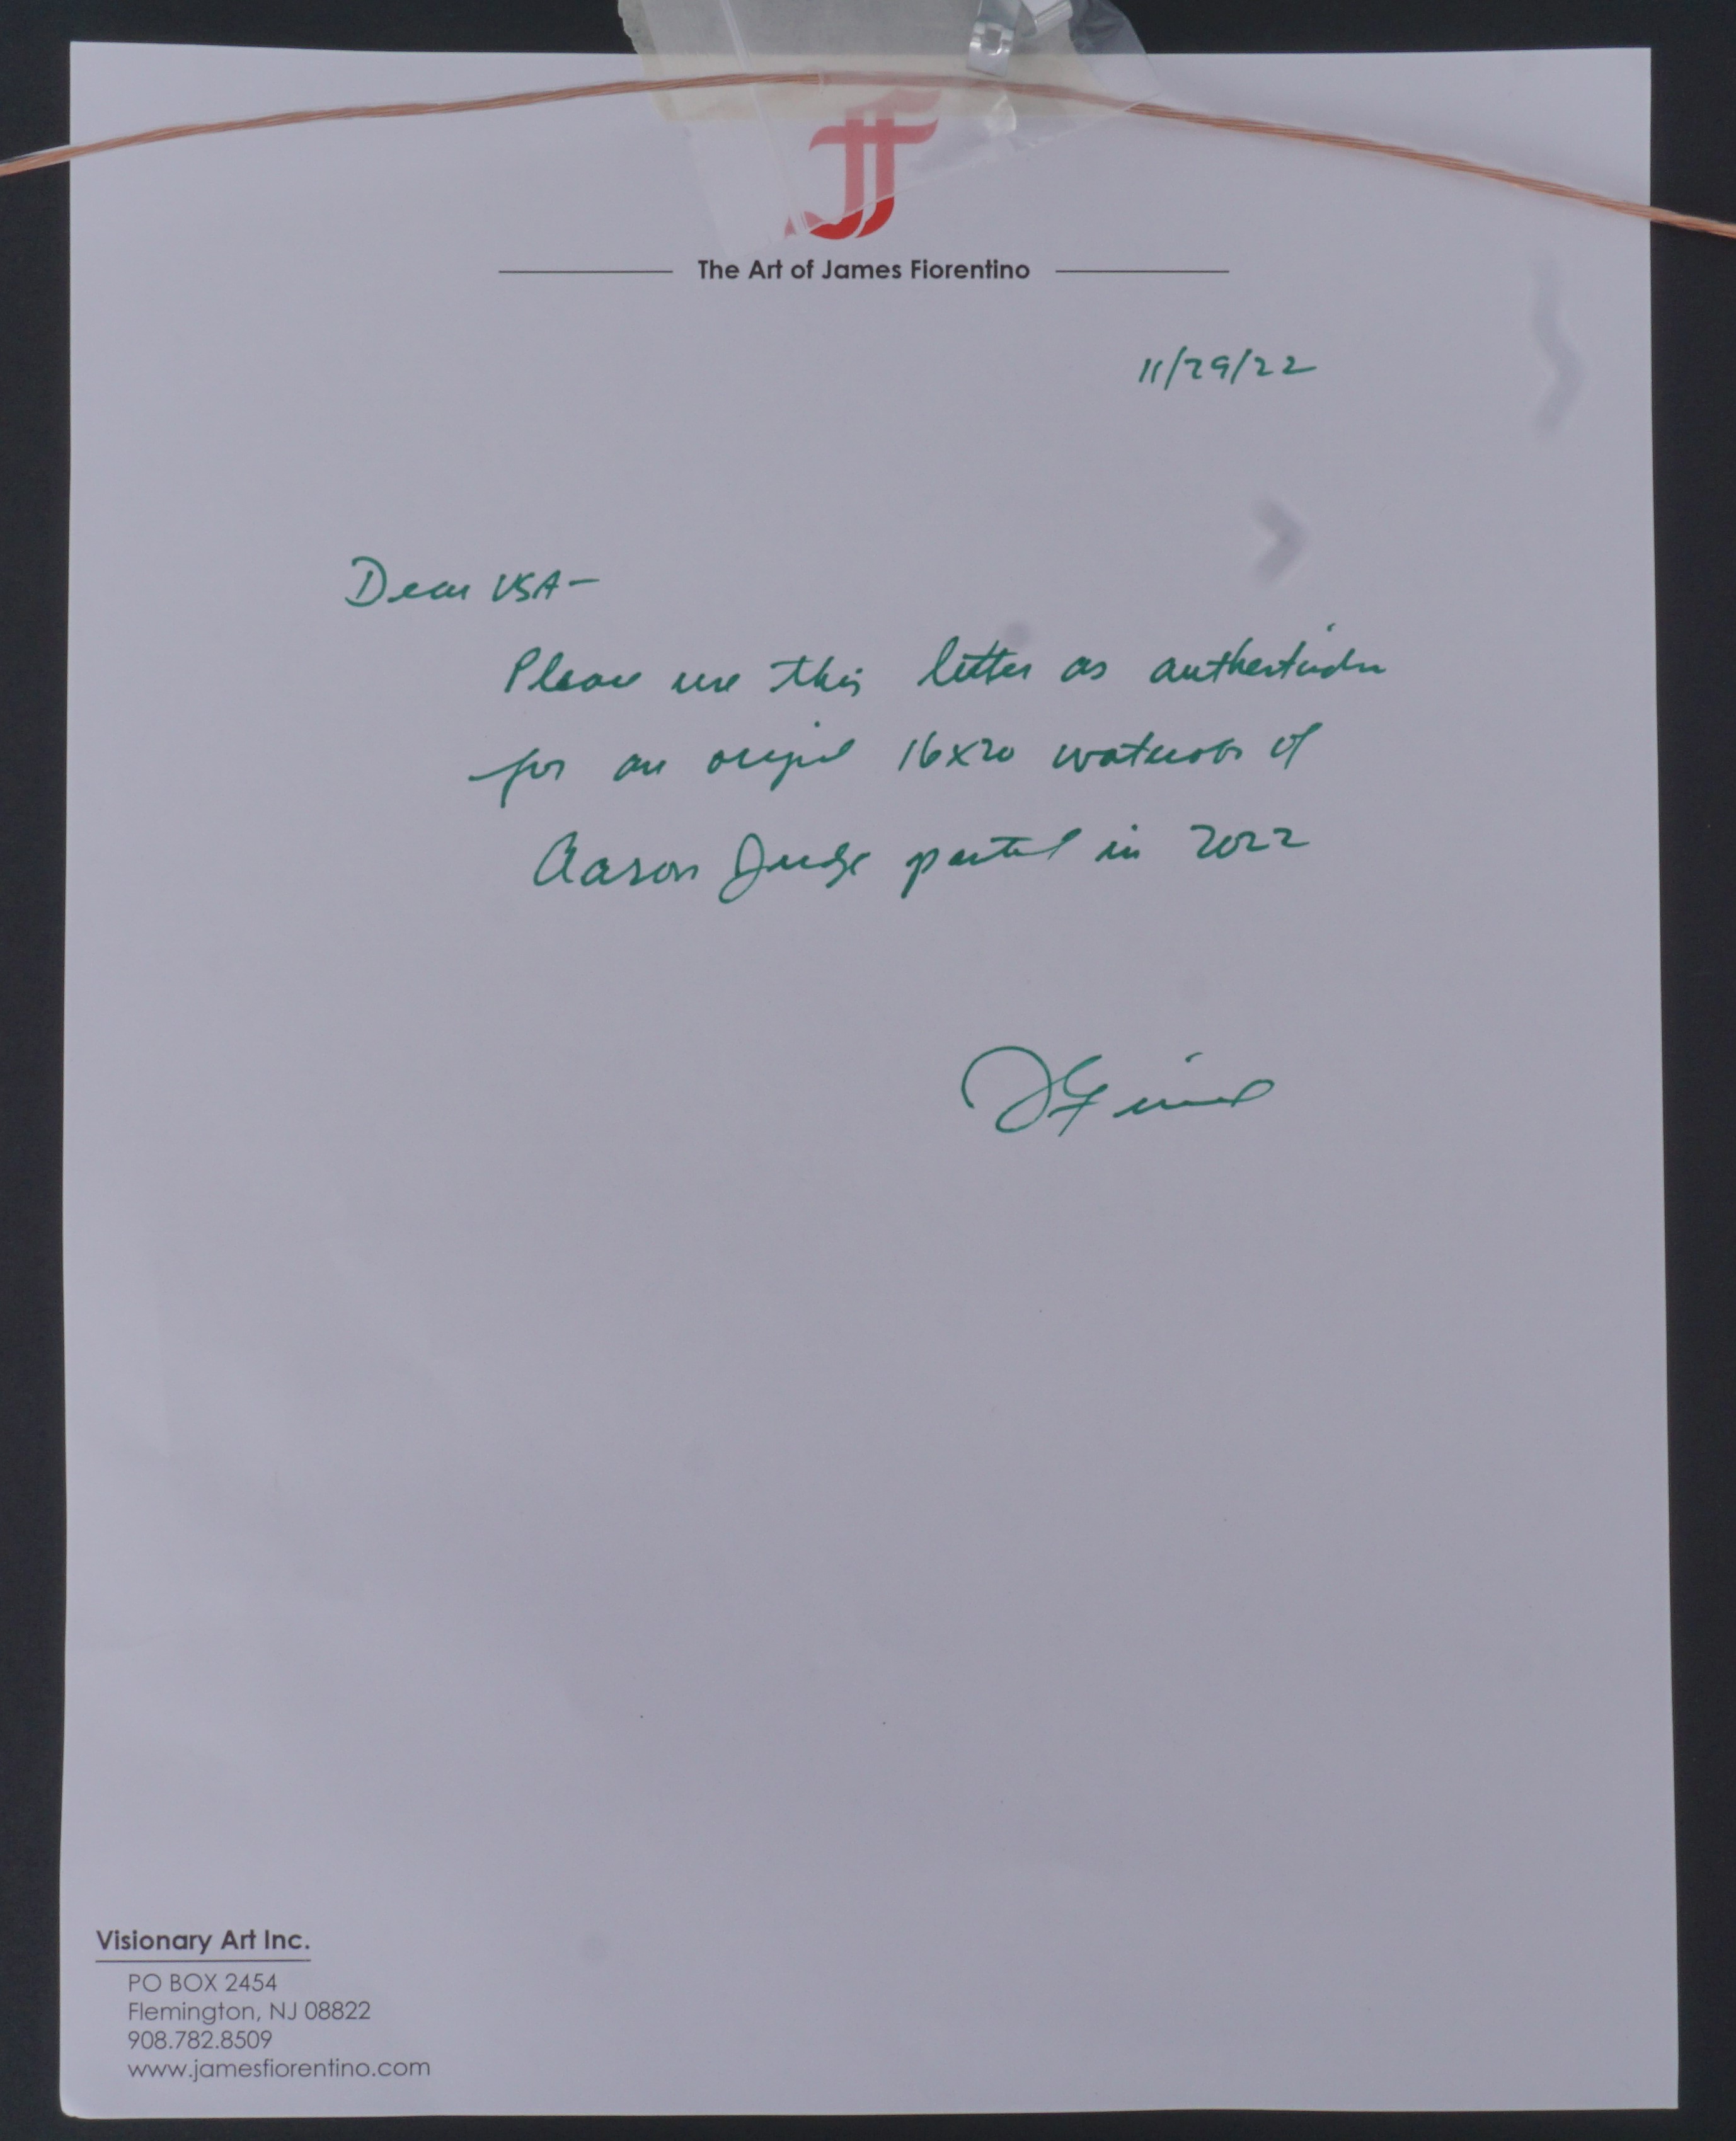 JF
The Art of James Fiorentino
11/29/22
Dear USA-
Please use this letter as authentication
for an original 16x20 watercolor of
Aaron Judge painted in 2022
Visionary Art Inc.
PO BOX 2454
Flemington, NJ 08822
908.782.8509
www.jamesfiorentino.com